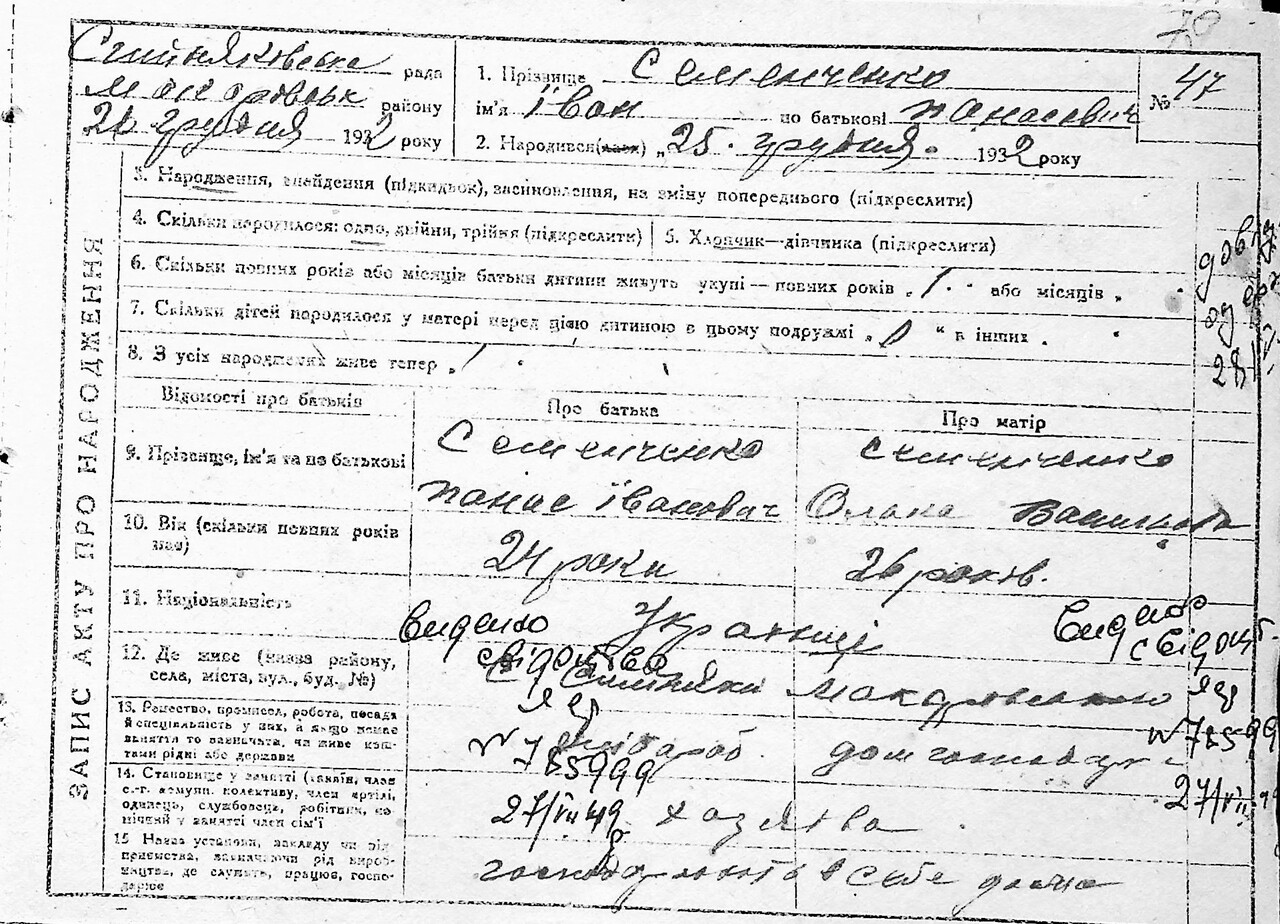 70
рада
району
26 грудня 1932 року
1. Прізвище Семенченко
ім'я Іван по батькові Панасович
№ 47
2. Народився(лась) „25. грудня. 1932 року
ЗАПИС АКТУ ПРО НАРОДЖЕННЯ
3. Народження, знайдення (підкидьок), засиновлення, на зміну попереднього (підкреслити)
4. Скільки народилося: одно, двійня, трійня (підкреслити)
5. Хлопчик—дівчинка (підкреслити)
6. Скільки повних років або місяців батьки дитини живуть укупі — повних років „ 1 " або місяців „
7. Скільки дітей народилося у матері перед цією дитиною в цьому подружжі „ " в інших
8. З усіх народжених живе тепер „
28
Відомості про батьків
Про батька
Про матір
9. Прізвище, ім'я та по батькові
Семенченко
Семенченко
Панас Іванович
Олена Васильовна
10. Вік (скільки повних років має)
24 роки
26 років.
11. Національність
Українці
Видано
свідоцтво
ЯЦ
№ 785999
27/VII 49
Видано
свідоцт.
ЯЦ
№ 785999
27/VII
12. Де живе (назва району,
села, міста, вул., буд. №)
13. Ремество, промисел, робота, посада
й спеціальність у них, а якщо немає
заняття то зазначити, чи живе кош-
тами рідні або держави
хлібароб
14. Становище у занятті (хазяїн, член
с.-г. комуни, колективу, член артілі,
одинець, службовець, робітник, по-
мічний у занятті член сім'ї
хазяїва
15 Назва установи, закладу чи під-
приємства, зазначаючи рід вироб-
ництва, де служить, працює, госпо-
дарює
в себе дома